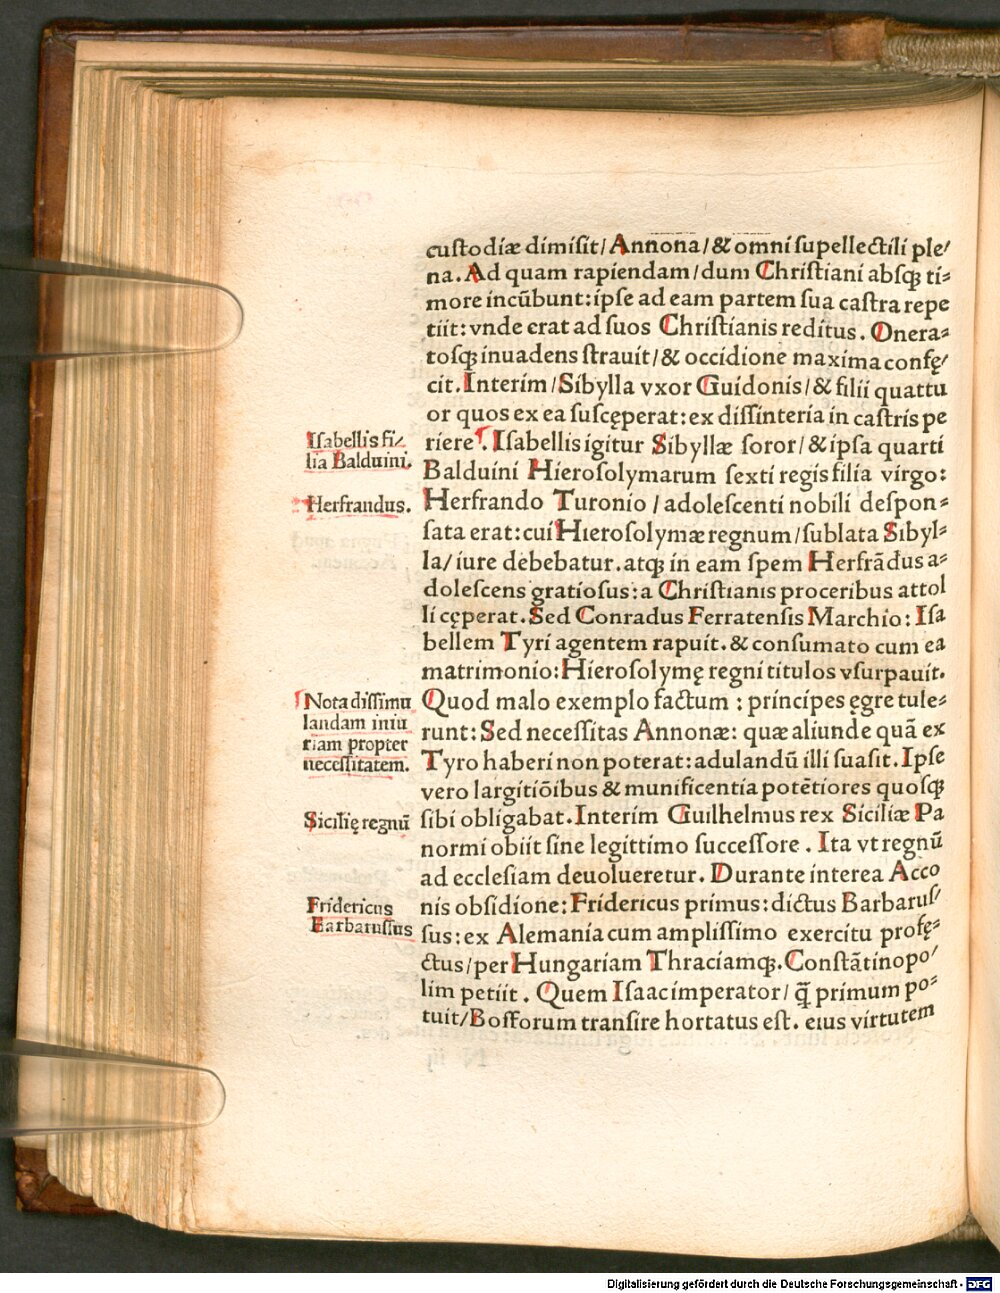 custodiæ dimisit/ Annona/ & omni supellectili ple/
na. Ad quam rapiendam/ dum Christiani absqꝫ ti⸗
more incũbunt: ipse ad eam partem sua castra repe
tiit: vnde erat ad suos Christianis reditus. Onera⸗
tosqꝫ inuadens strauit/ & occidione maxima confę/
cit. Interim/ Sibylla vxor Guidonis/ & filii quattu
or quos ex ea suscęperat: ex dissinteria in castris pe
riere. Isabellis igitur Sibyllæ soror/ & ipsa quarti
Balduini Hierosolymarum sexti regis filia virgo:
Herfrando Turonio / adolescenti nobili despon⸗
sata erat: cui Hierosolymæ regnum/ sublata Sibyl⸗
la/ iure debebatur. atqꝫ in eam spem Herfrãdus a⸗
dolescens gratiosus: a Christianis proceribus attol
li cęperat. Sed Conradus Ferratensis Marchio: Isa
bellem Tyri agentem rapuit. & consumato cum ea
matrimonio: Hierosolymę regni titulos vsurpauit.
Quod malo exemplo factum : principes ęgre tule⸗
runt: Sed necessitas Annonæ: quæ aliunde quã ex
Tyro haberi non poterat: adulandũ illi suasit. Ipse
vero largitiõibus & munificentia potẽtiores quosqꝫ
sibi obligabat. Interim Guilhelmus rex Siciliæ Pa
normi obiit sine legittimo successore . Ita vt regnũ
ad ecclesiam deuolueretur. Durante interea Acco
nis obsidione: Fridericus primus: dictus Barbarus/
sus: ex Alemania cum amplissimo exercitu profę⸗
ctus/ per Hungariam Thraciamqꝫ. Constãtinopo/
lim petiit . Quem Isaac imperator/ q̃ primum po⸗
tuit/ Bosforum transire hortatus est. eius virtutem
Isabellis fi/
lia Balduini.
Herfrandus.
Nota dissimu
landam iniu
riam propter
necessitatem.
Sicilię regnũ
Fridericus
Barbarussus
Digitalisierung gefördert durch die Deutsche Forschungsgemeinschaft - DFG